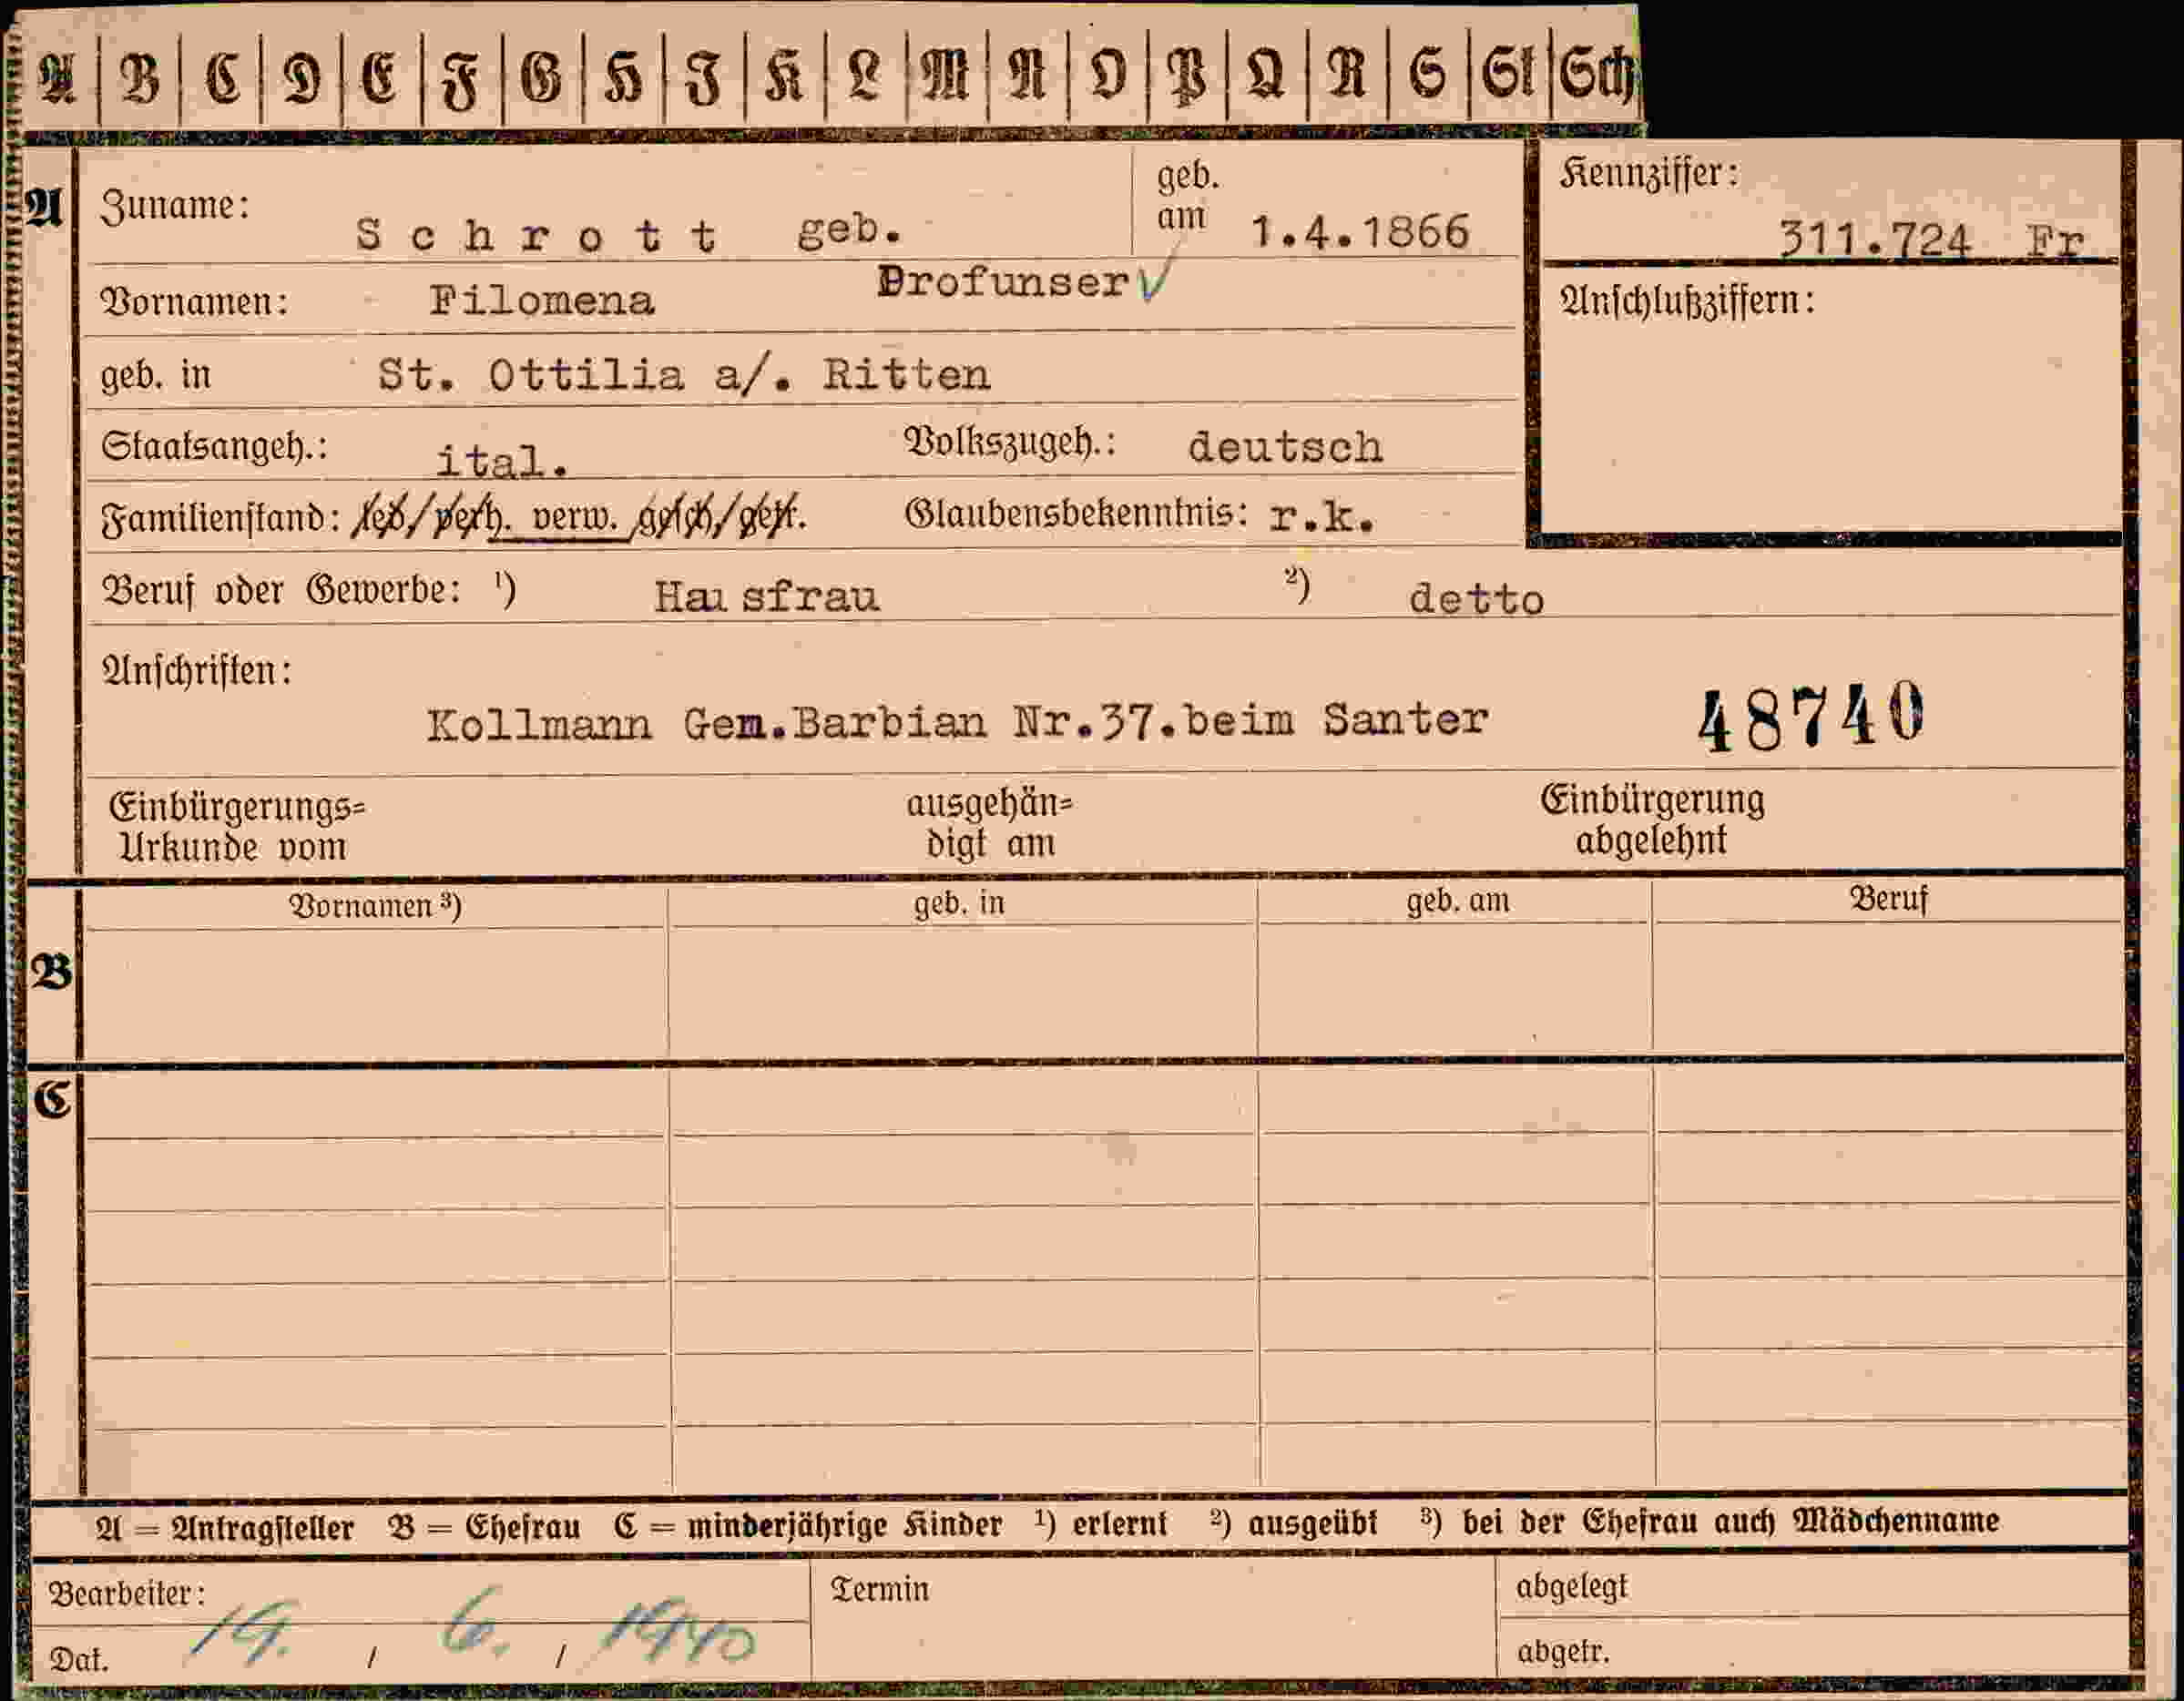 A B C D E F G H I K L M N O P Q R S St Sch
A Zuname: Schrott geb. geb. am 1.4.1866 Kennziffer: 311.724 Fr
Vornamen: Filomena Profunser √ Anschlußziffern:
geb. in St. Ottilia a/. Ritten
Staatsangeh.: ital. Volkszugeh.: deutsch
Familienstand: led/verh. verw. gesch/getr. Glaubensbekenntnis: r.k.
Beruf oder Gewerbe: ¹) Hausfrau ²) detto
Anschriften:
Kollmann Gem.Barbian Nr.37.beim Santer 48740
Einbürgerungs= ausgehän= Einbürgerung
Urkunde vom digt am abgelehnt
Vornamen ³) geb. in geb. am Beruf
B
C
A = Antragsteller B = Ehefrau C = minderjährige Kinder ¹) erlernt ²) ausgeübt ³) bei der Ehefrau auch Mädchenname
Bearbeiter: Termin abgelegt
Dat. 19. / 6. / 1940 abgetr.